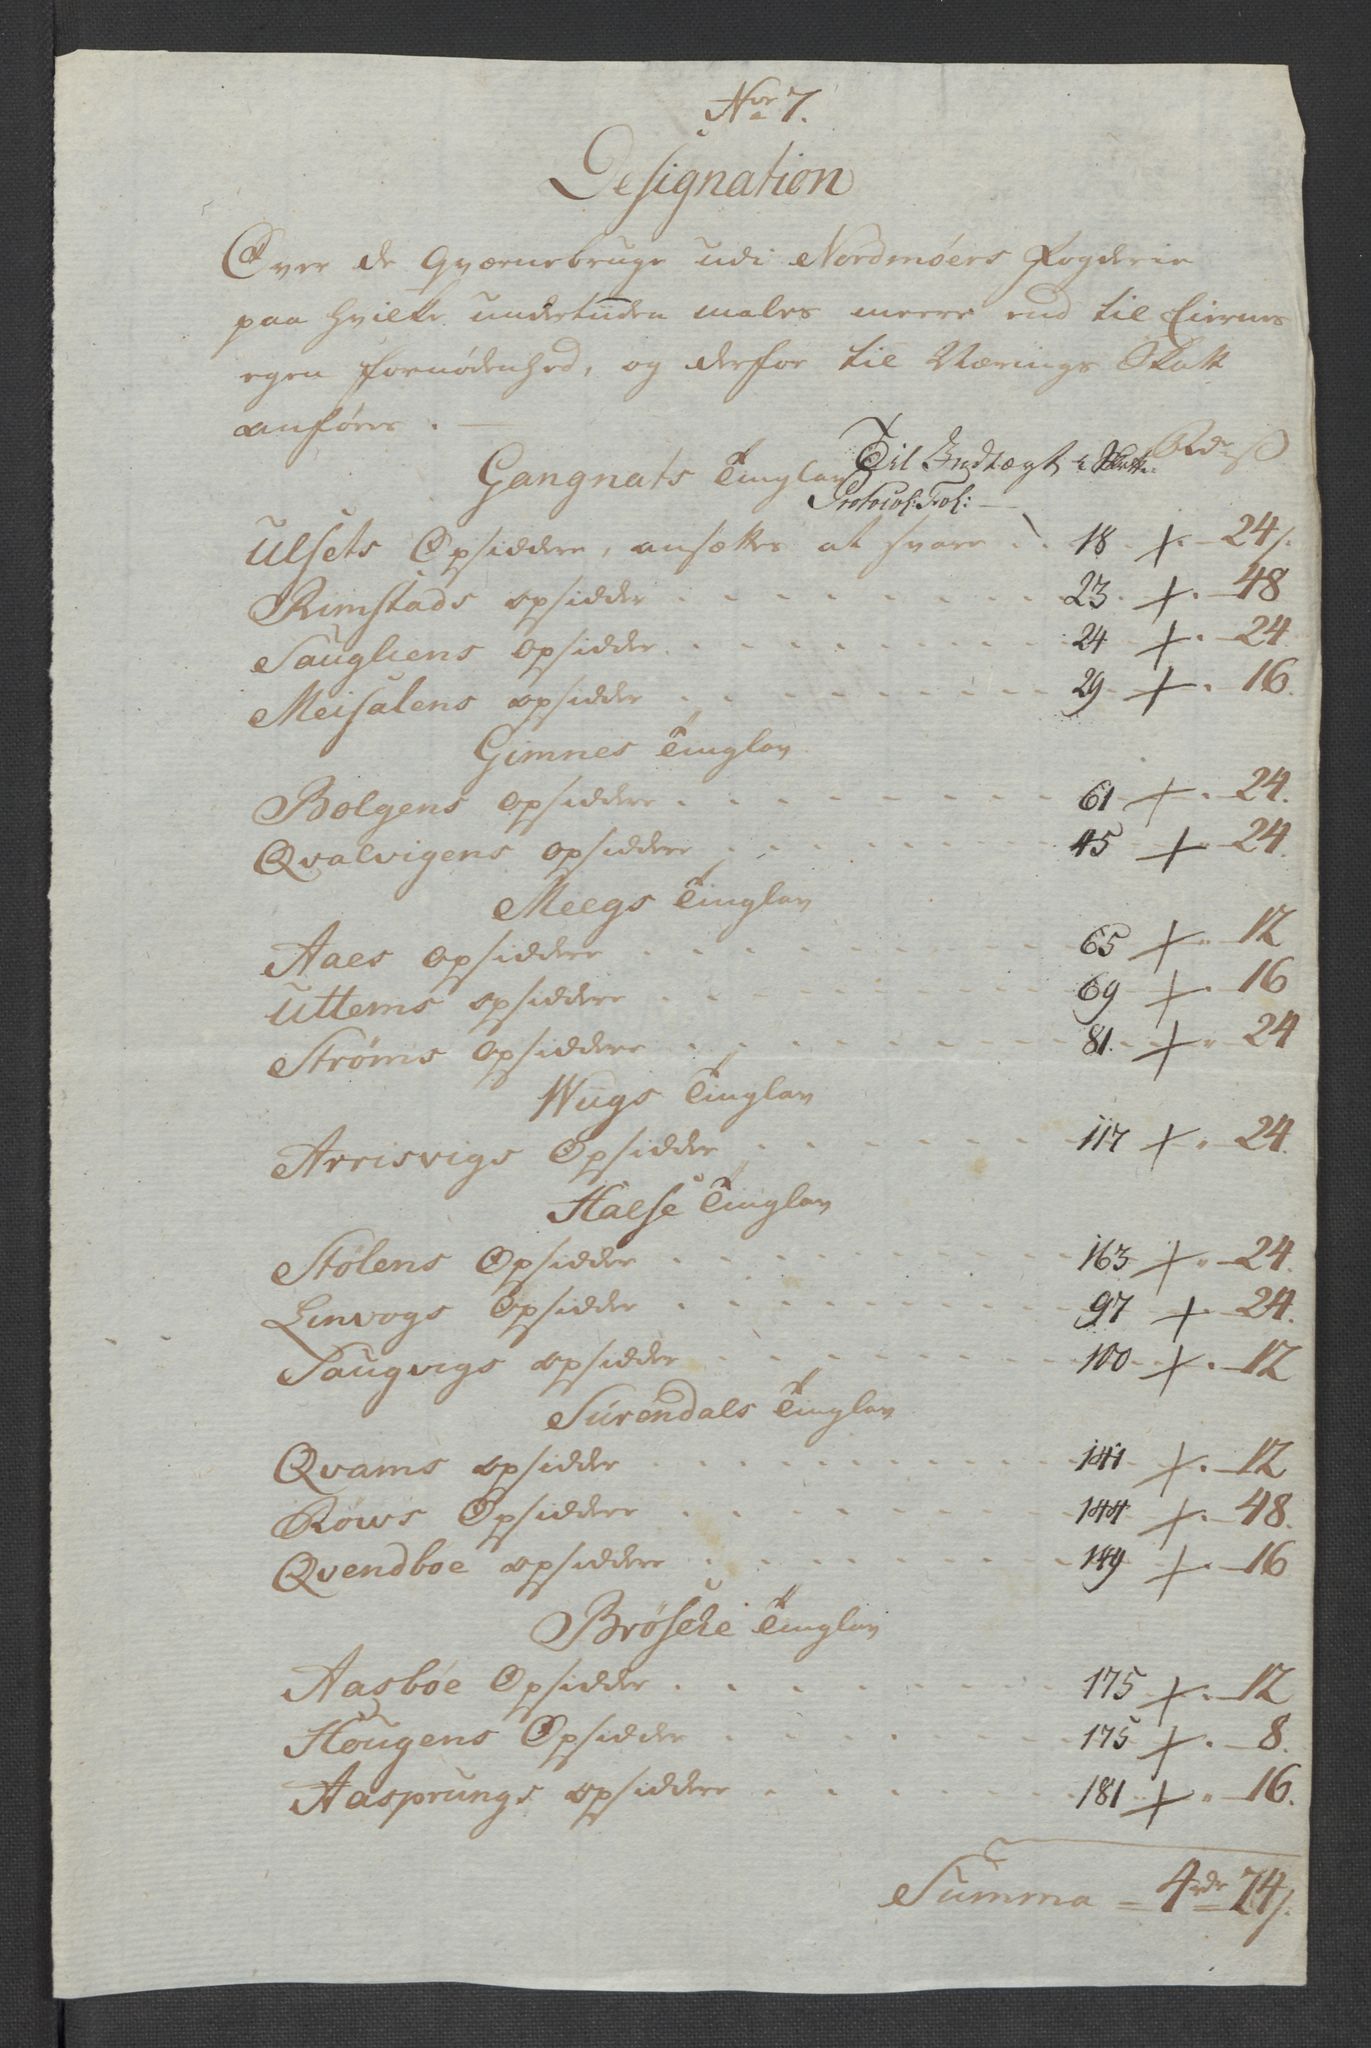 No 7.
Designation
Over de Qværnebruge udi Nordmøers Fogderie
paa hvilke undertiiden males meere end til Eiernes
egen fornødenhed, og derfor til Nærings Skatt
anføres.
Gangnats Tinglav Til Indtægt i Skatte Rdr ß
Protocol: Fol:
Ulsets Opsiddere, ansættes at svare 18 + 24ß.
Rimstads opsidder 23 + 48
Saugliens opsidder 24 + 24
Meisalens opsidder 29 + 16.
Gimnes Tinglav
Bolgens opsiddere 61 + 24.
Qvalvigens opsiddere 45 + 24.
Meegs Tinglav
Aaes opsiddere 65 + 12
Uttems opsiddere 69 + 16
Strøms opsiddere 81. + 24
Wugs Tinglav
Arrisvigs Opsidder 117 + 24.
Halse Tinglav
Stølens Opsidder 163 + 24.
Linvogs Opsidder 97 + 24.
Saugvigs opsidder 100 + 12
Surendals Tinglav
Qvams opsidder 141 + 12
Røws Opsiddere 144 + 48.
Qvendboe opsiddere 149 + 16
Brøsche Tinglav
Aasbøe Opsidder 175 + 12
Hougens Opsidder 175 + 8.
Aasprungs opsiddere 181 + 16.
Summa = 4 rdr 74ß.